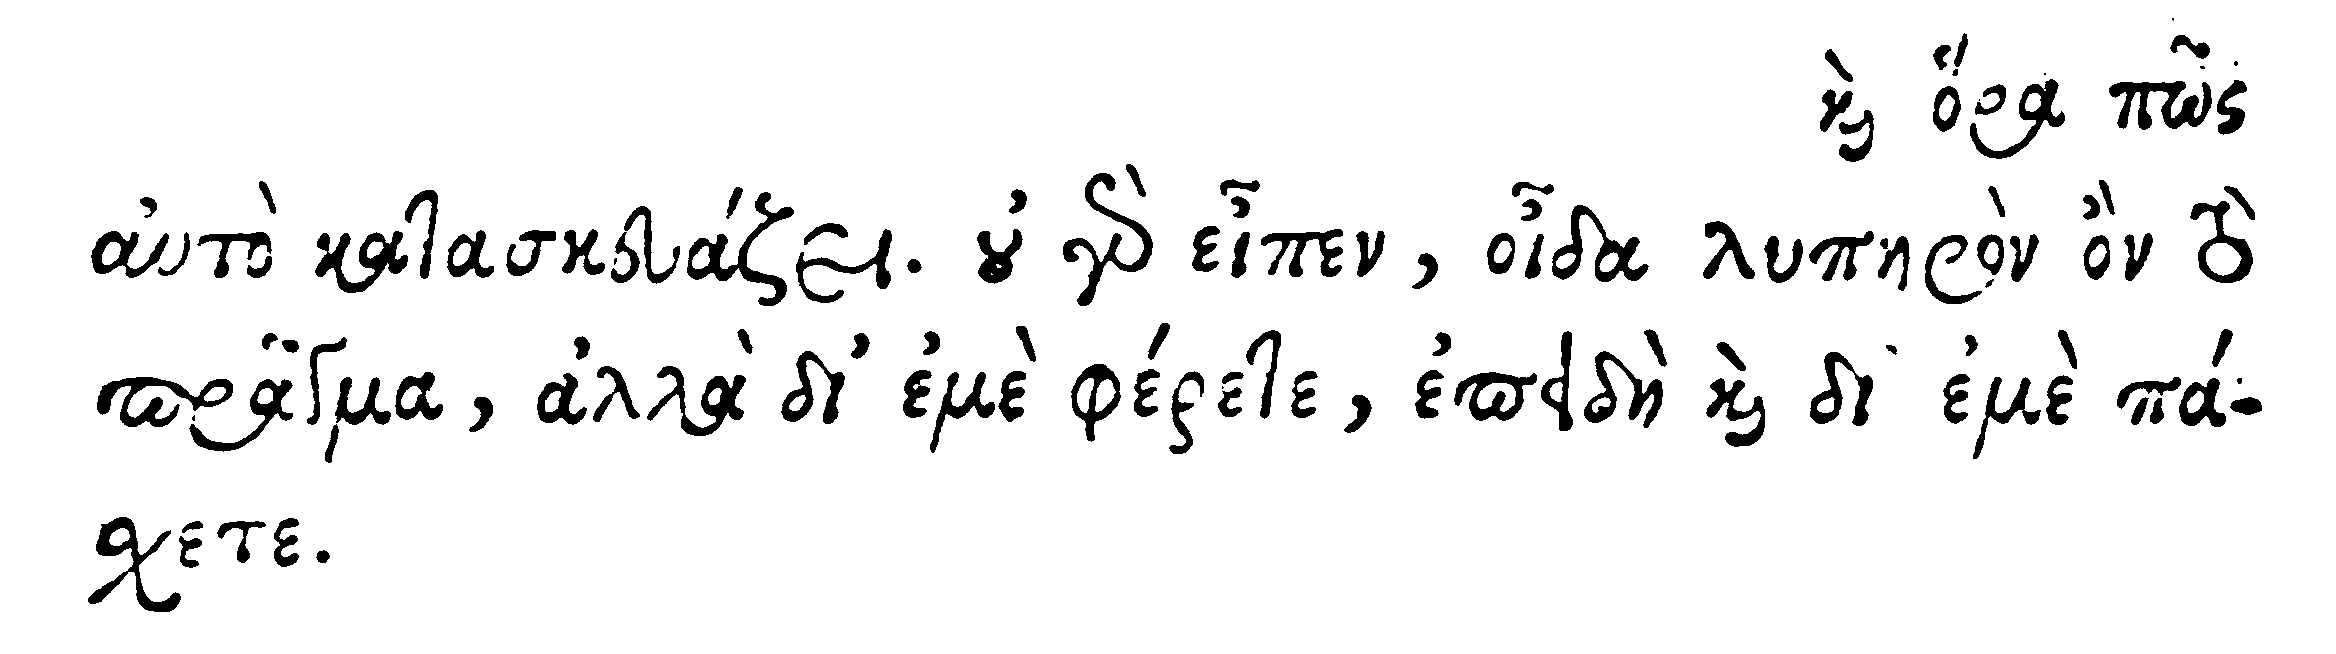 καὶ ὅρα πῶς
αὐτὸ κατασκευάζει. οὐ γὰρ εἶπεν, οἶδα λυπηρὸν ὂν τὸ
πρᾶγμα, ἀλλὰ δι' ἐμὲ φέρετε, ἐπειδὴ καὶ δι' ἐμὲ πά-
σχετε.